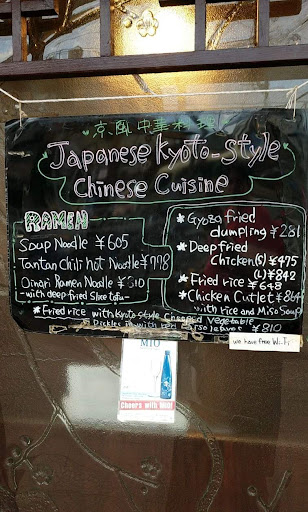 京風中華料理
Japanese Kyoto-Style
Chinese Cuisine
RAMEN
Soup Noodle ¥605
Tantan Chili hot Noodle ¥778
Oinari Ramen Noodle ¥810
-with deep-fried Slice tofu-
* Gyoza fried
dumpling ¥281
* Deep fried
Chicken (S) ¥475
(L) ¥842
* Fried rice ¥648
* Chicken Cutlet ¥864
with rice and Miso Soup
* Fried rice with Kyoto style Chopped Vegetable
Pickles with red leaves ¥810
we have free Wi-Fi
MIO
Cheers with MIO!